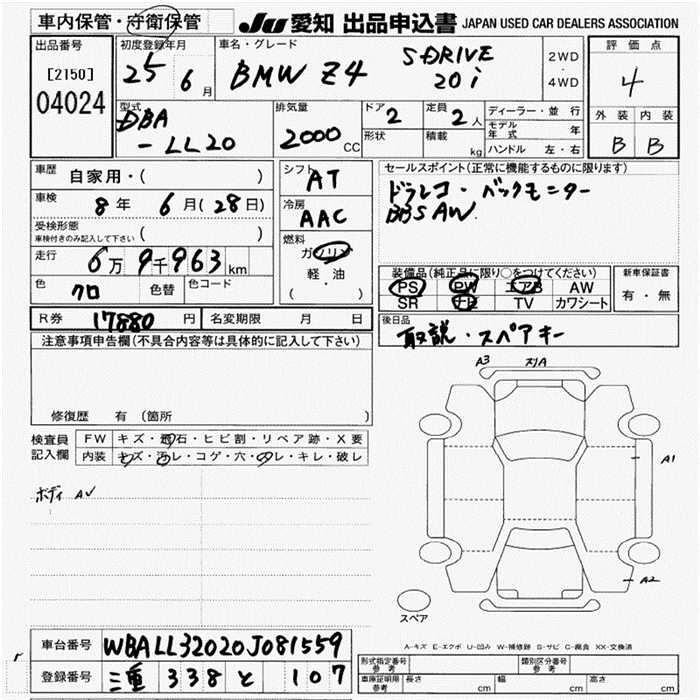 車内保管・守衛保管
JU 愛知 出品申込書 JAPAN USED CAR DEALERS ASSOCIATION
出品番号
[2150]
04024
初度登録年月
25 6 月
車名・グレード
BMW Z4 S-DRIVE 20i
2WD
・
4WD
評価点
4
外装 内装
B B
型式
DBA
-LL20
排気量
2000 CC
ドア
2
定員
2 人
形状
積載
kg
ディーラー・並行
モデル年式 年
ハンドル 左・右
車歴
自家用・( )
車検
8 年 6 月(28日)
受検形態
車検付きのみ記入して下さい ( )
走行
6万9千963 km
色
クロ
色替
色コード
シフト
AT
冷房
AAC
燃料
ガソリン
軽・油
( )
セールスポイント(正常に機能するものに限ります)
ドラレコ・バックモニター
BBS AW
装備品(純正品に限り○をつけてください)
PS PW エアB AW
SR ナビ TV カワシート
新車保証書
有・無
R券 17880 円
名変期限 月 日
後日品
取説・スペアキー
注意事項申告欄(不具合内容等は具体的に記入して下さい)
修復歴 有(箇所
検査員記入欄
FW キズ・飛石・ヒビ割・リペア跡・X要
内装 キズ・汚レ・コゲ・穴・スレ・キレ・破レ
ボディ
A3
スリA
A1
A2
スペア
A-キズ E-エクボ U-凹み W-補修跡 S-サビ C-腐食 XX-交換済
車台番号 WBALL32020J081559
登録番号 三重 338 と 107
形式指定番号
参考
類別区分番号
参考
車庫証明用
参考
長さ cm
幅 cm
高さ cm